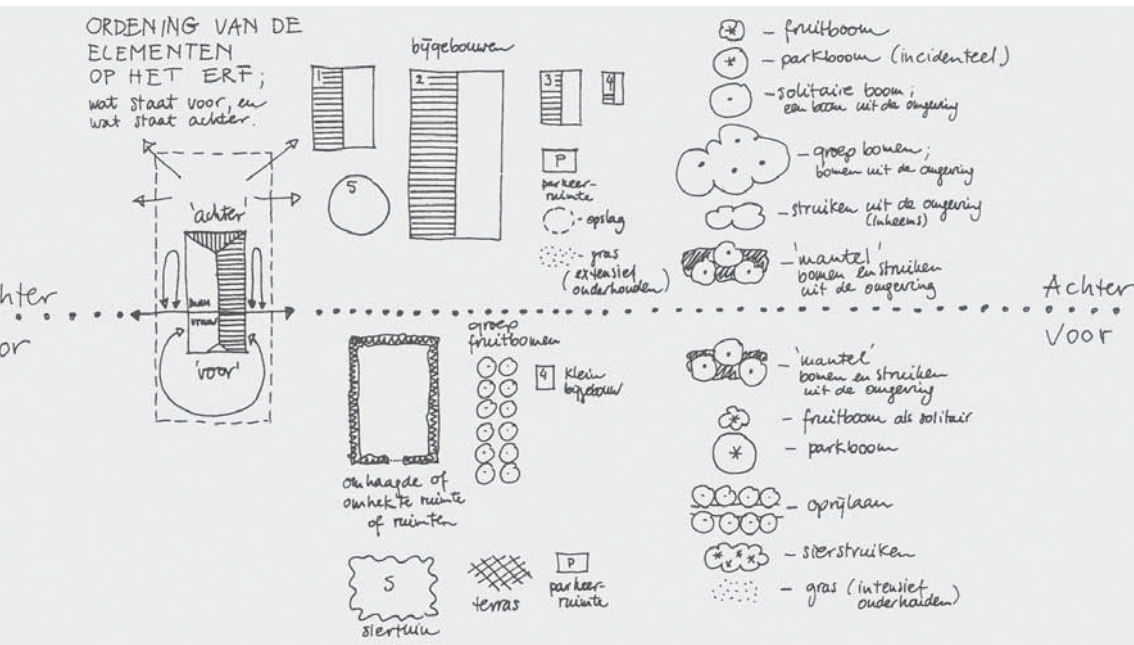 ORDENING VAN DE
ELEMENTEN
OP HET ERF;
wat staat voor, en
wat staat achter.
'achter'
man
vrouw
'voor'
hter
or
bijgebouwen
1
2
3
4
5
P
parkeer-
ruimte
- opslag
- gras
(extensief
onderhouden)
- fruitboom
- parkboom (incidenteel)
- solitaire boom;
een boom uit de omgeving
- groep bomen;
bomen uit de omgeving
- struiken uit de omgeving
(inheems)
- 'mantel'
bomen en struiken
uit de omgeving
Achter
Voor
groep
fruitbomen
4 klein
bijgebouw
omhaagde of
omhekte ruimte
of ruimten
S
siertuin
terras
P
parkeer-
ruimte
- 'mantel'
bomen en struiken
uit de omgeving
- fruitboom als solitair
- parkboom
- oprijlaan
- sierstruiken
- gras (intensief
onderhouden)